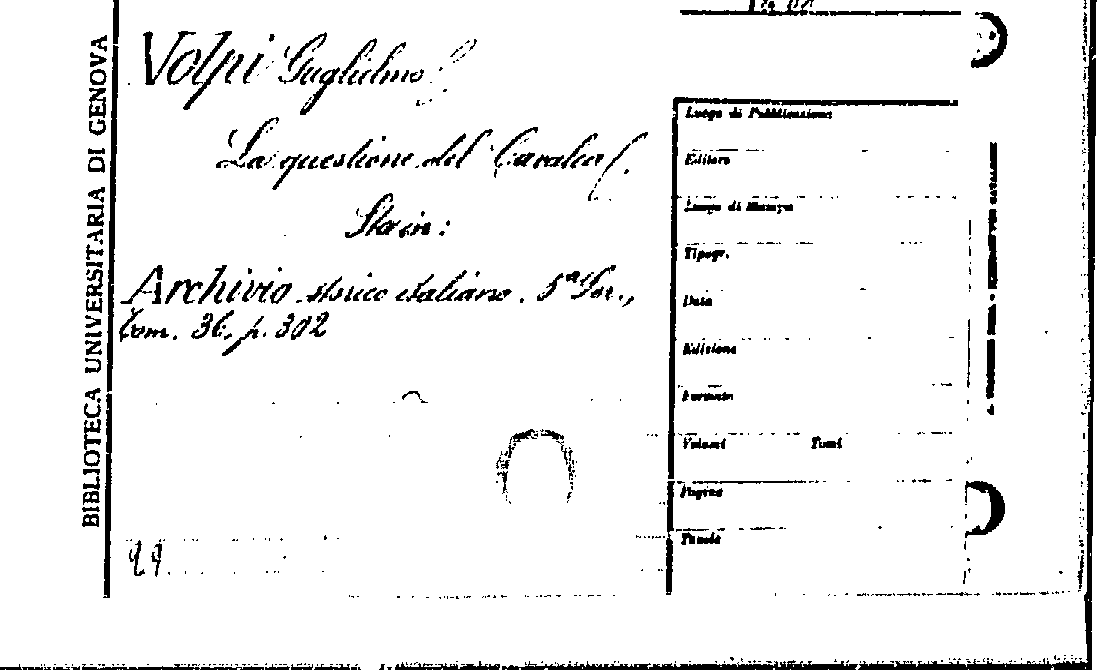 BIBLIOTECA UNIVERSITARIA DI GENOVA
Volpi Guglielmo
La questione del Cavalca.
Sta in:
Archivio storico italiano. 5ª Ser.,
Tom. 36, p. 302
99
Luogo di Pubblicazione
Editore
Luogo di Stampa
Tipogr.
Data
Edizione
Formato
Volumi Tomi
Pagine
Tavole